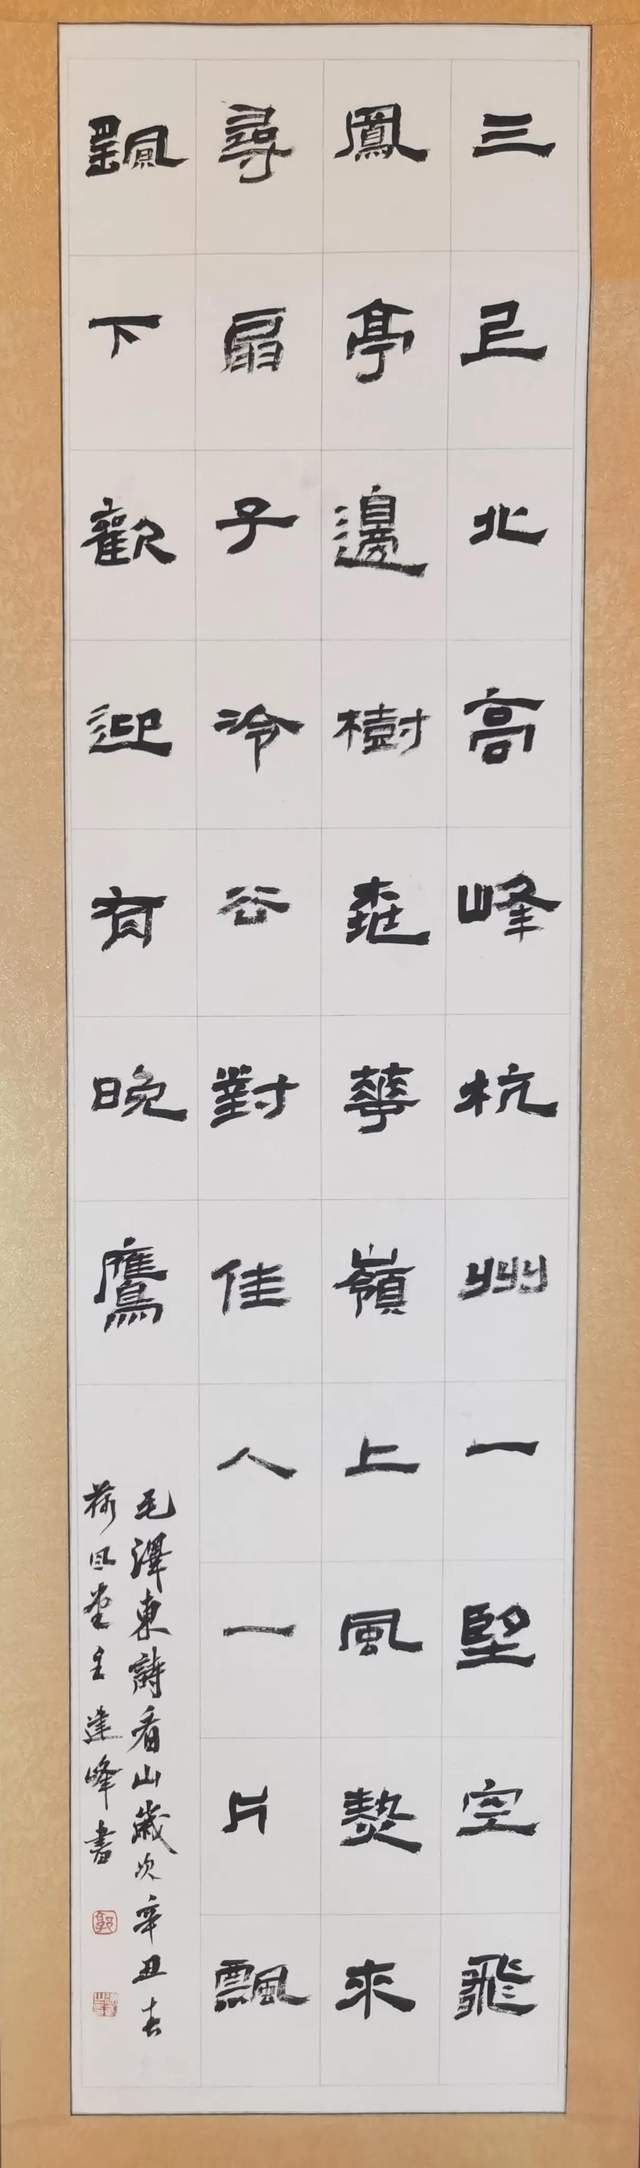 三北高峰杭州一望空飛
鳳亭邊樹桃華嶺上風熱來
尋扇子冷去對佳人一片飄
颻下歡迎有晚鷹
毛澤東詩看山歲次辛丑春
荷風堂主達峰書